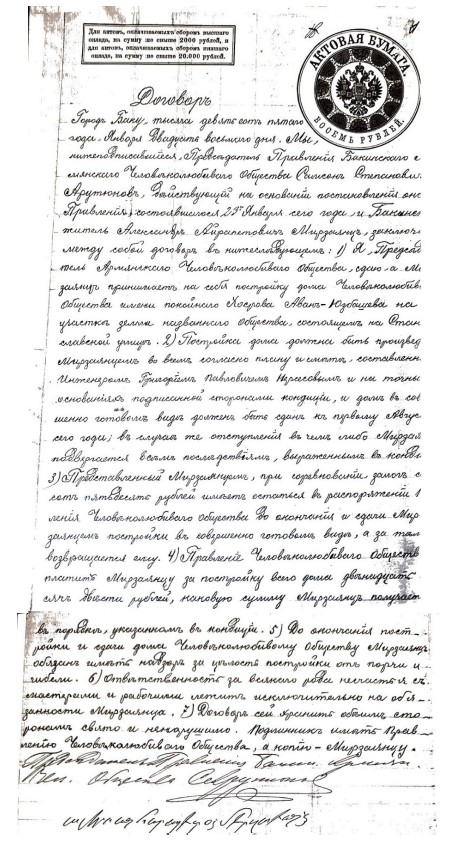 Для актовъ, оплачиваемыхъ сборомъ высшаго
оклада, на сумму не свыше 2000 рублей, и
для актовъ, оплачиваемыхъ сборомъ низшаго
оклада, на сумму не свыше 20.000 рублей.
АКТОВАЯ БУМАГА
ВОСЕМЬ РУБЛЕЙ.
Договоръ
Городъ Баку, тысяча девятьсотъ пятаго
года, Января двадцать восьмого дня. Мы,
нижеподписавшіеся, Предсѣдатель Правленія Бакинскаго
мянскаго Человѣколюбиваго Общества Самсонъ Степанов
Арутюновъ, дѣйствующій на основаніи постановленія
Правленія, состоявшагося 27го Января сего года, и Бакинс
житель Александръ Айрапетовичъ Мирзаянцъ, заключ
между собой договоръ въ нижеслѣдующемъ: 1) Я, Предсѣд
тель Армянскаго Человѣколюбиваго Общества, сдаю, а Ми
заянцъ принимаетъ на себя постройку дома Человѣколюбив
Общества имени покойнаго Хосрова Аванъ-Юзбашева на
участкѣ земли названнаго Общества, состоящемъ на Стан
славской улицѣ. 2) Постройка дома должна быть произвед
Мирзаянцемъ во всемъ согласно плану и смѣтѣ, составленн
Инженеромъ Григоріемъ Павловичемъ и на точны
основаніяхъ подписанной сторонами кондиціи, и домъ въ сов
шенно готовомъ видѣ долженъ быть сданъ къ первому Авгус
сего года; въ случаѣ же отступленія въ чемъ либо Мирзая
подвергается всѣмъ послѣдствіямъ, выраженнымъ въ конди
3) Представленный Мирзаянцемъ, при соревнованіи залогъ
сотъ пятьдесятъ рублей имѣетъ остаться въ распоряженіи
ленія Человѣколюбиваго Общества до окончанія и сдачи Мир
заянцемъ постройки въ совершенно готовомъ видѣ, а за тѣм
возвращается ему. 4) Правленіе Человѣколюбиваго Обществ
платитъ Мирзаянцу за постройку всего дома двѣнадцать
сячъ двѣсти рублей, каковую сумму Мирзаянцъ получает
въ порядкѣ, указанномъ въ кондиціи. 5) До окончанія пост-
ройки и сдачи дома Человѣколюбивому Обществу Мирзаянцъ
обязанъ имѣть надзоръ за цѣлость постройки отъ порчи и
гибели. 6) Отвѣтственность за всякаго рода несчастія съ
мастерами и рабочими лежитъ исключительно на обя-
занности Мирзаянца. 7) Договоръ сей хранить обѣимъ сто-
ронамъ свято и ненарушимо. Подлинникъ имѣть Прав-
ленію Человѣколюбиваго Общества, а копію - Мирзаянцу.
Предсѣдатель Правленія Бакин. Армянск
Чел. Общества